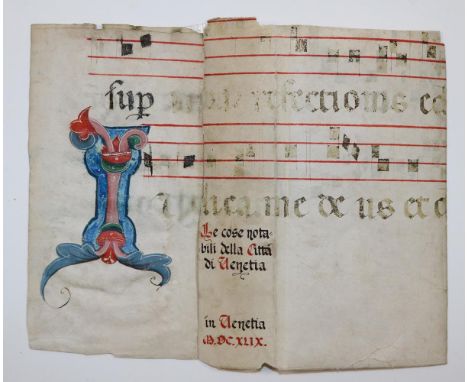 suꝑ refectionis
I udica me de us et d
Le cose nota-
bili della Città
di Venetia
in Venetia
M.DC.XLIX.